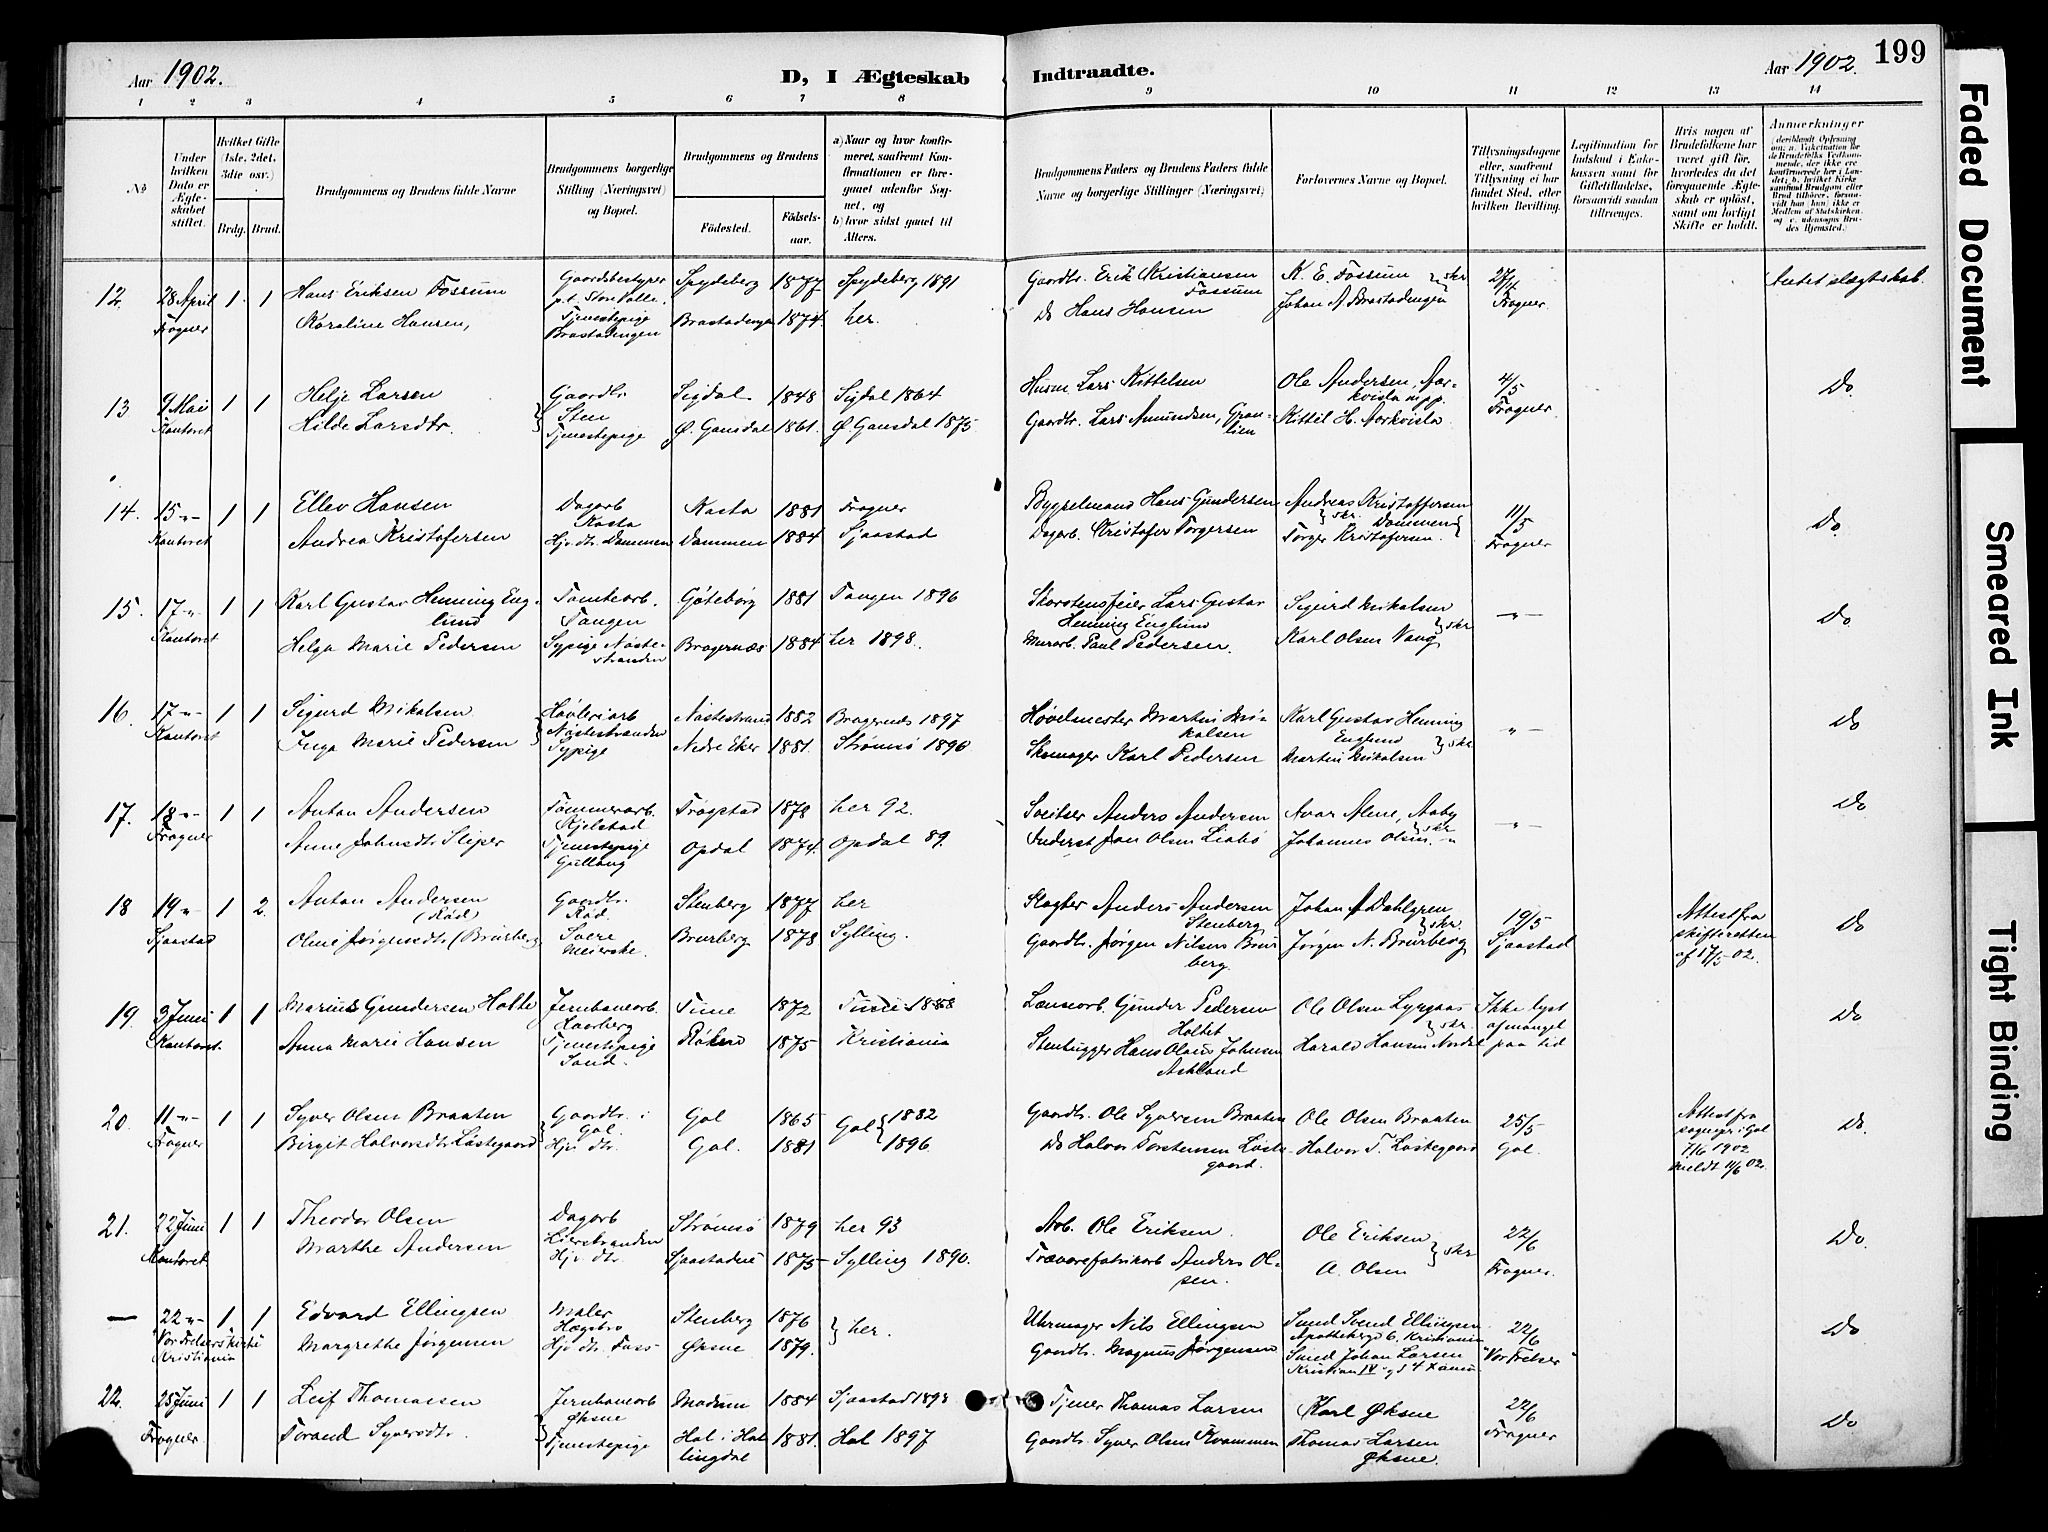 Aar 1902.
D, I Ægteskab
Indtraadte.
Aar 1902.
199
1 2 3 4 5 6 7 8 9 10 11 12 13 14
No
Under hvilken Dato er Ægteskabet stiftet.
Hvilket Gifte (1ste, 2det, 3die osv.)
Brdg. Brud.
Brudgommens og Brudens fulde Navne
Brudgommens borgerlige Stilling (Næringsvei) og Bopæl.
Brudgommens og Brudens
Fødested.
Fødsels-aar.
a) Naar og hvor konfirmeret, saafremt Konfirmationen er foregaaet udenfor Sognet, og
b) hvor sidst gaaet til Alters.
Brudgommens Faders og Brudens Faders fulde Navne og borgerlige Stillinger (Næringsvei)
Forlovernes Navne og Bopæl.
Tillysningsdagene eller, saafremt Tillysning ei har fundet Sted, efter hvilken Bevilling.
Legitimation for Indskud i Enkekassen samt for Giftetilladelse, forsaavidt saadan tiltrænges.
Hvis nogen af Brudefolkene har været gift før, hvorledes da det foregaaende Ægteskab er opløst, samt om lovligt Skifte er holdt.
Anmerkninger
12. 28 April Frogner 1 1
Hans Eriksen Fossum
Karoline Hansen,
Gaardsbestyrer p.t. Store Valle
Tjenestepige Brastadengen
Spydeberg 1877 Spydeberg 1891
Brastadengen 1874. her.
Gaardbr. Erik Kristiansen Fossum
Do Hans Hansen
K. E. Fossum } skr
Johan A Brastadengen
27/4 Frogner
Intet slægtskab.
13 9 Mai Kontoret 1 1
Helje Larsen
Hilde Larsdtr.
Gaardbr. Sten
Tjenestepige
Sigdal 1848 Sigdal 1864
Ø. Gausdal 1861. Ø Gausdal 1875
Husm Lars Kittelsen
Gaardbr. Lars Amundsen, Granlien
Ole Andersen, Aarkvisla mpp.
Kittil H. Aarkvisla
4/5 Frogner
Do
14. 15 -"- Kontoret 1 1
Ellev Hansen
Andrea Kristofersen
Dagarb Kasta
Hjv. dtr. Dammen
Kasta 1881 Frogner
Dammen 1884 Sjaastad
Bygselmand Hans Gundersen
Dagarb. Kristofer Torgersen
Andreas Kristoffersen } skr. Dammen
Torger Kristofersen.
11/5 Frogner
Do.
15. 17 -"- Kontoret 1 1
Karl Gustav Henning Englund
Helga Marie Pedersen
Tomtearb. Tangen
Sypige Nøstestranden
Göteborg 1881 Tangen 1896
Bragernæs 1884 her 1898.
Skorstensfeier Lars Gustav Henning Englund
Murarb. Paul Pedersen.
Sigurd Mikalsen } skr
Karl Olsen Vang
-"-
Do
16. 17 -"- Kontoret 1 1
Sigurd Mikalsen
Inga Marie Pedersen
Høvleriarb Nøstestranden
Sypige
Nøstestrand 1882 Bragernæs 1897
Nedre Eker 1881. Strømsø 1896
Høvelmester Martin Mikalsen
Skomager Karl Pedersen
Karl Gustav Henning Englund } skr.
Martin Mikalsen
-"-
Do
17. 18 -"- Frogner 1 1
Anton Andersen
Anne Johnsdtr. Sliper
Tømmerarb. Kjelstad
Tjenestepige Gullaug
Trøgstad 1878 her 92.
Opdal 1874. Opdal 89.
Sveitser Anders Andersen
Inderst Jon Olsen Liabø
Johannes Olsen. -"- } skr
-"-
Do
18 19 -"- Sjaastad 1 2.
Anton Andersen (Rød)
Oline Jørgensdtr (Brurberg)
Gaardbr. Rød.
Svere Meierske.
Stenberg 1877 her
Brurberg 1878 Sylling.
Slagter Anders Andersen Stenberg
Gaardbr. Jørgen Nilsen Brurberg.
Johan A Dahlgren } skr.
Jørgen N. Brurberg
19/5 Sjaastad
Attest fra skifteretten af 17/5-02.
Do
19. 3 Juni Kontoret 1 1
Marius Gundersen Holte
Anna Marie Hansen
Jernbanearb.
Tjenestepige Sand.
Tune 1872 Tune 1888
Røken 1875 Kristiania
Lænsearb. Gunder Pedersen Holtet
Stenhugger Hans Olaus Johnsen Askland
Ole Olsen Lyrgaas } skr.
Harald Hansen Nordal
Ikke lyst af mangel paa tid
Do
20. 11 -"- Frogner 1 1
Syver Olsen Braaten
Birgit Halvorsdtr. Løstegaard
Gaardbr. i Gol.
Hjv dtr.
Gol 1865 Gol { 1882
Gol. 1881 1896
Gaardbr. Ole Syversen Braaten
Do Halvor Torstensen Løstegaard.
Ole Olsen Braaten
Halvor T. Løstegaard
25/5 Gol.
Attest fra sognepr. i Gol 7/6 1902 meldt 11/6 02.
Do.
21. 22 Juni Kontoret 1 1
Theodor Olsen
Marthe Andersen
Dagarb Lierstranden
Hjv. dtr.
Strømsø 1879 her 93
Sjaastadeie 1875 Sylling 1890.
Arb. Ole Eriksen.
Trævarefabrikarb Anders Olsen.
Ole Eriksen } skr
A. Olsen
22/6 Frogner.
Do.
— 22 -"- "Vor Frelsers" kirke Kristiania 1 1
Edvard Ellingsen
Margrethe Jørgensen
Maler Hægsbro
Hjv. dtr. Foss
Stenberg 1876 } her.
Øksne 1879.
Uhrmager Nils Ellingsen
Gaardbr. Magnus Jørgensen
Smed Svend Ellingsen. Apothekergd 6, Kristiania
Smed Johan Larsen Kristian IV gd 4
22/6 "Vor Frelser"
Do
22. 25 Juni Frogner. 1 1
Leif Thomassen
Torand Syversdtr.
Jernbanearb Øksne
Tjenestepige
Modum 1884 Sjaastad 1898
Hol i Hallingdal 1881. Hol 1897
Tjener Thomas Larsen
Gaardbr. Syver Olsen Kvammen
Karl Øksne
Thomas Larsen Øksne.
22/6 Frogner
Do
Faded Document
Smeared Ink
Tight Binding